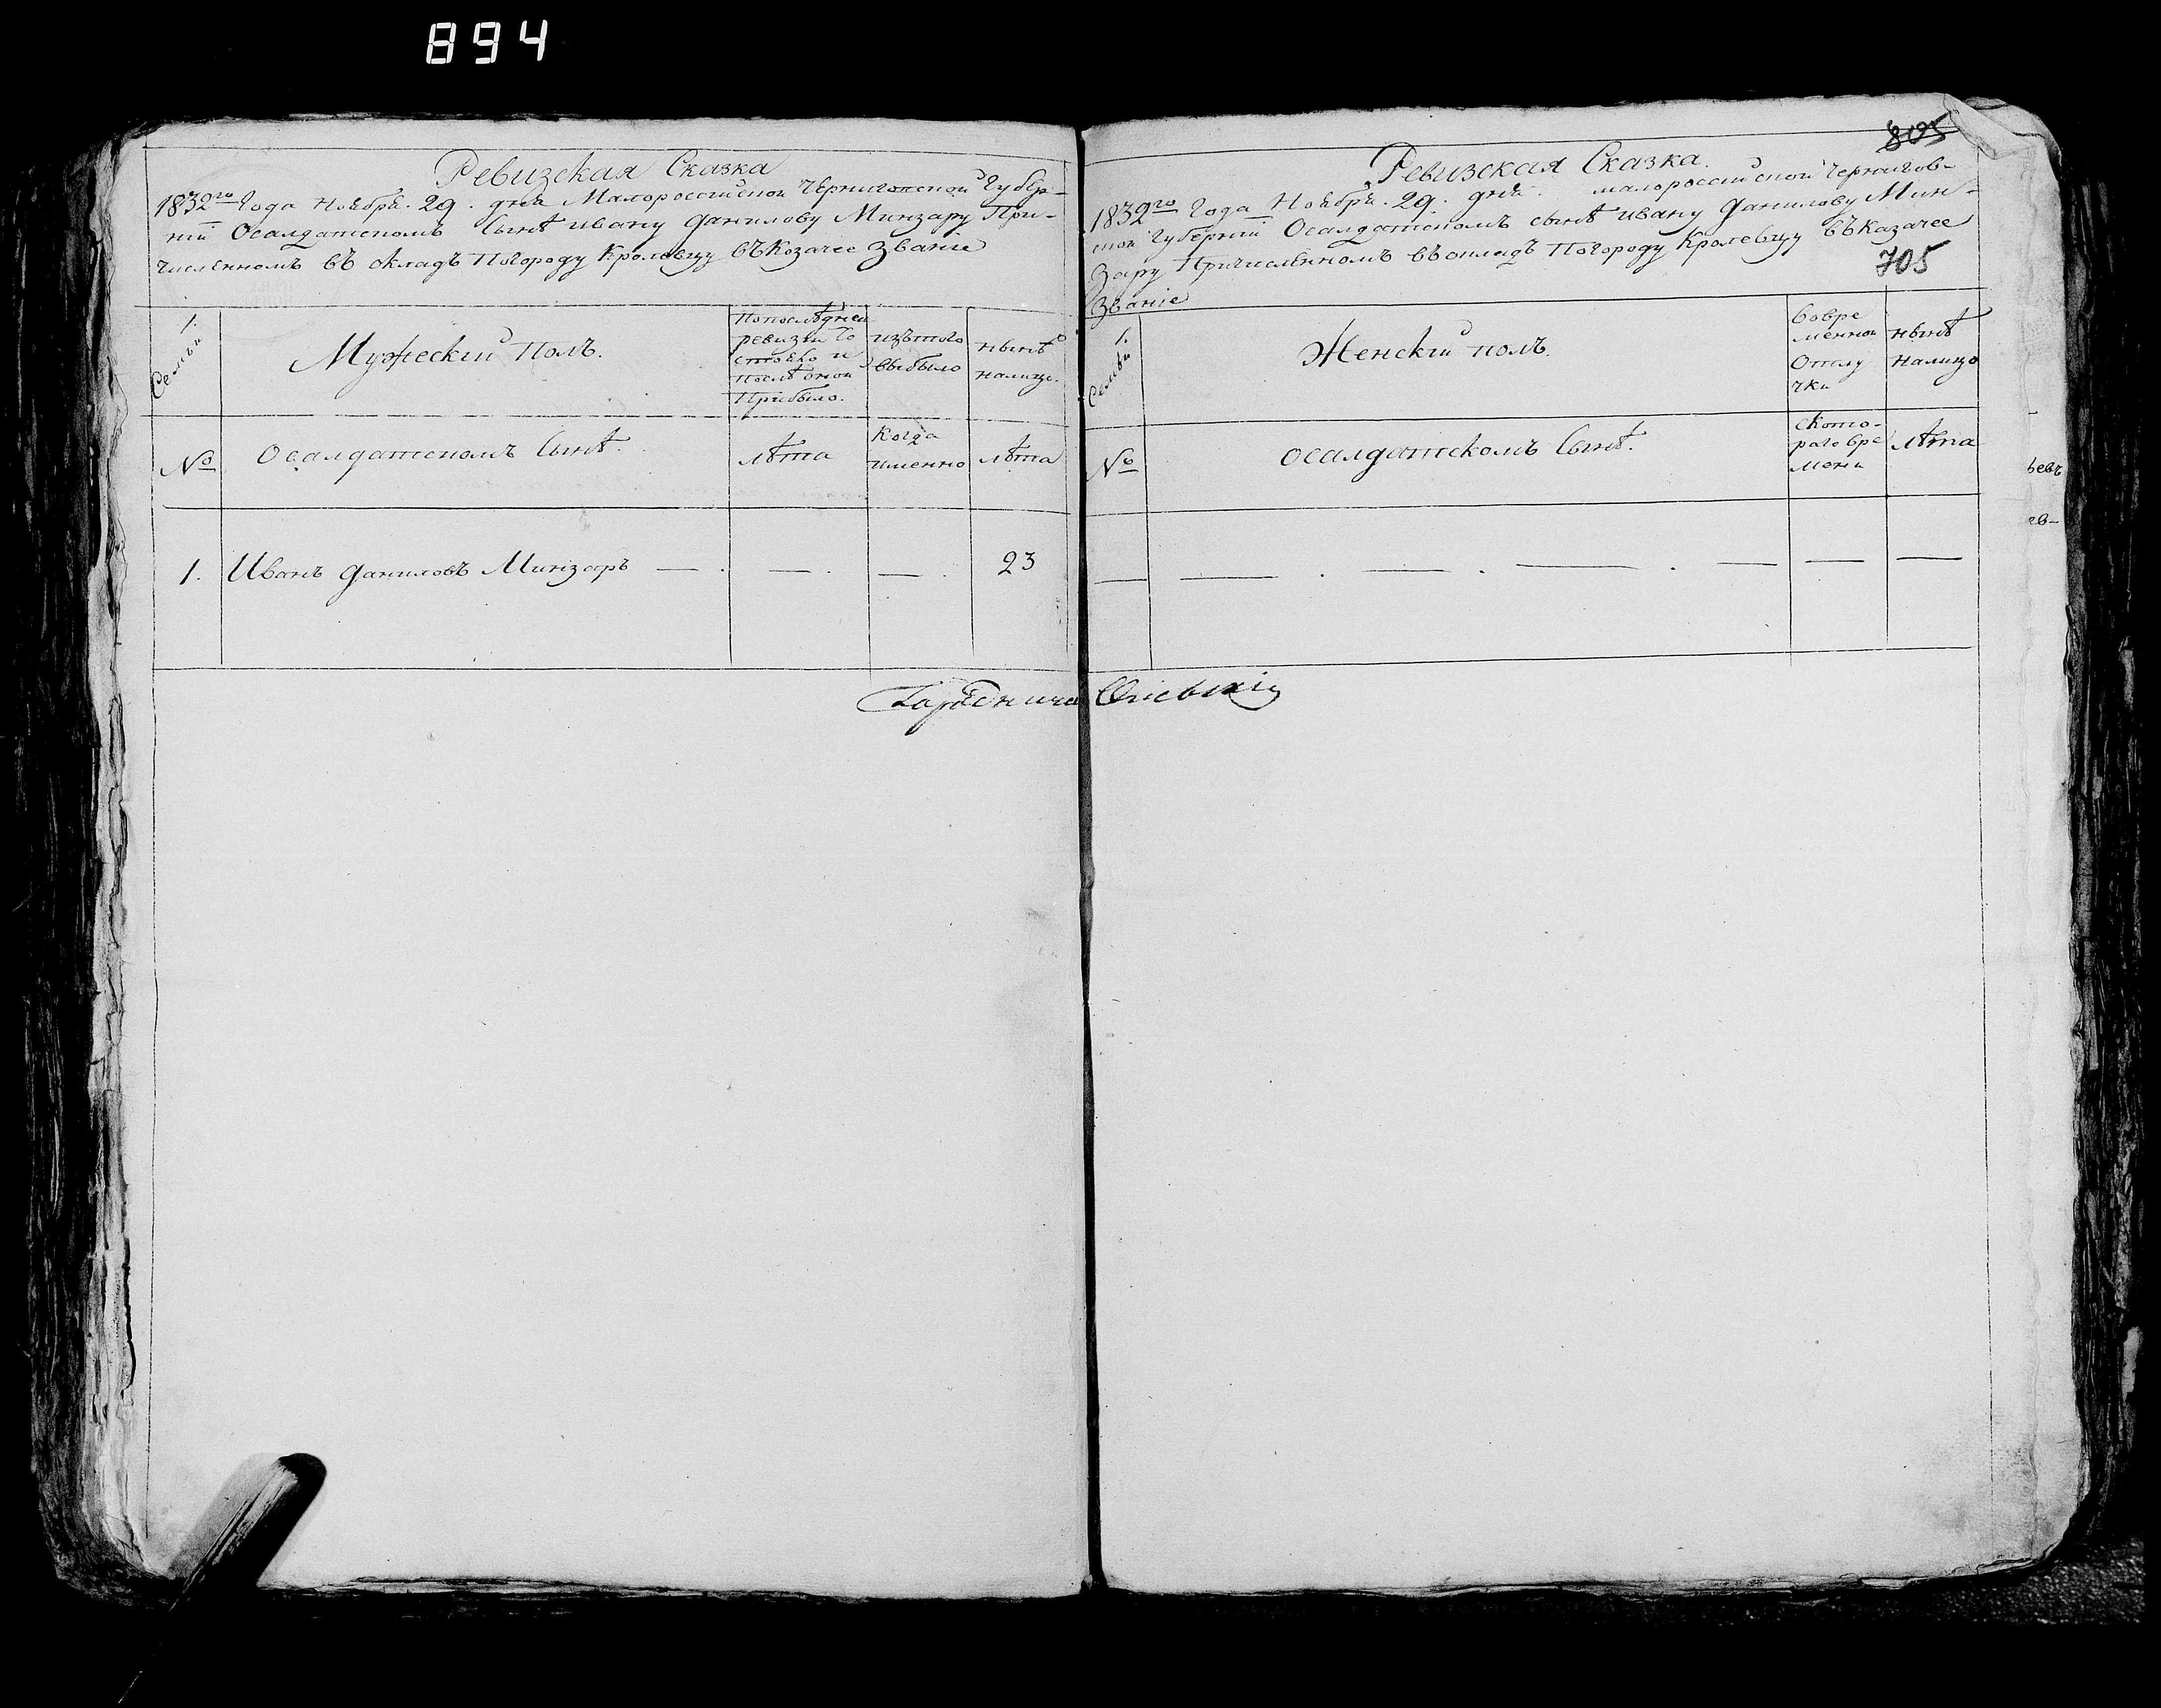 894
Ревизская Сказка
1832го Года Ноября. 29. дня Малороссійской Черниговской Губер-
ніи Осалдатскомъ Сынѣ Ивану Данилову Минзару При-
численномъ въ окладъ Погороду Кролевцу въ Козачее Званіе
1.
Семьи
Мужескій полъ.
Попослѣдней
ревизіи Со
стояло и
послѣ оной
Прибыло.
изътого
выбыло
нынѣ
налицо.
№
Осалдатскомъ Сынѣ.
лѣта
Когда
именно
лѣта
1. Иванъ Даниловъ Минзаръ — . — . — . 23
805
Ревизская Сказка.
1832го Года Ноября. 29. дня. Малороссійской Чернигов-
ской Губерніи Осалдатскомъ сынѣ Ивану Данилову Мин-
зару Причисленномъ въ окладъ Погороду Кролевцу въ Казачее
Званіе
705
1.
Семьи
Женскій полъ.
Вовре
менной
Отлу
чки
нынѣ
налицо
№
Осалдатскомъ Сынѣ.
Ското-
раго вре
мени
лѣта
Городничій